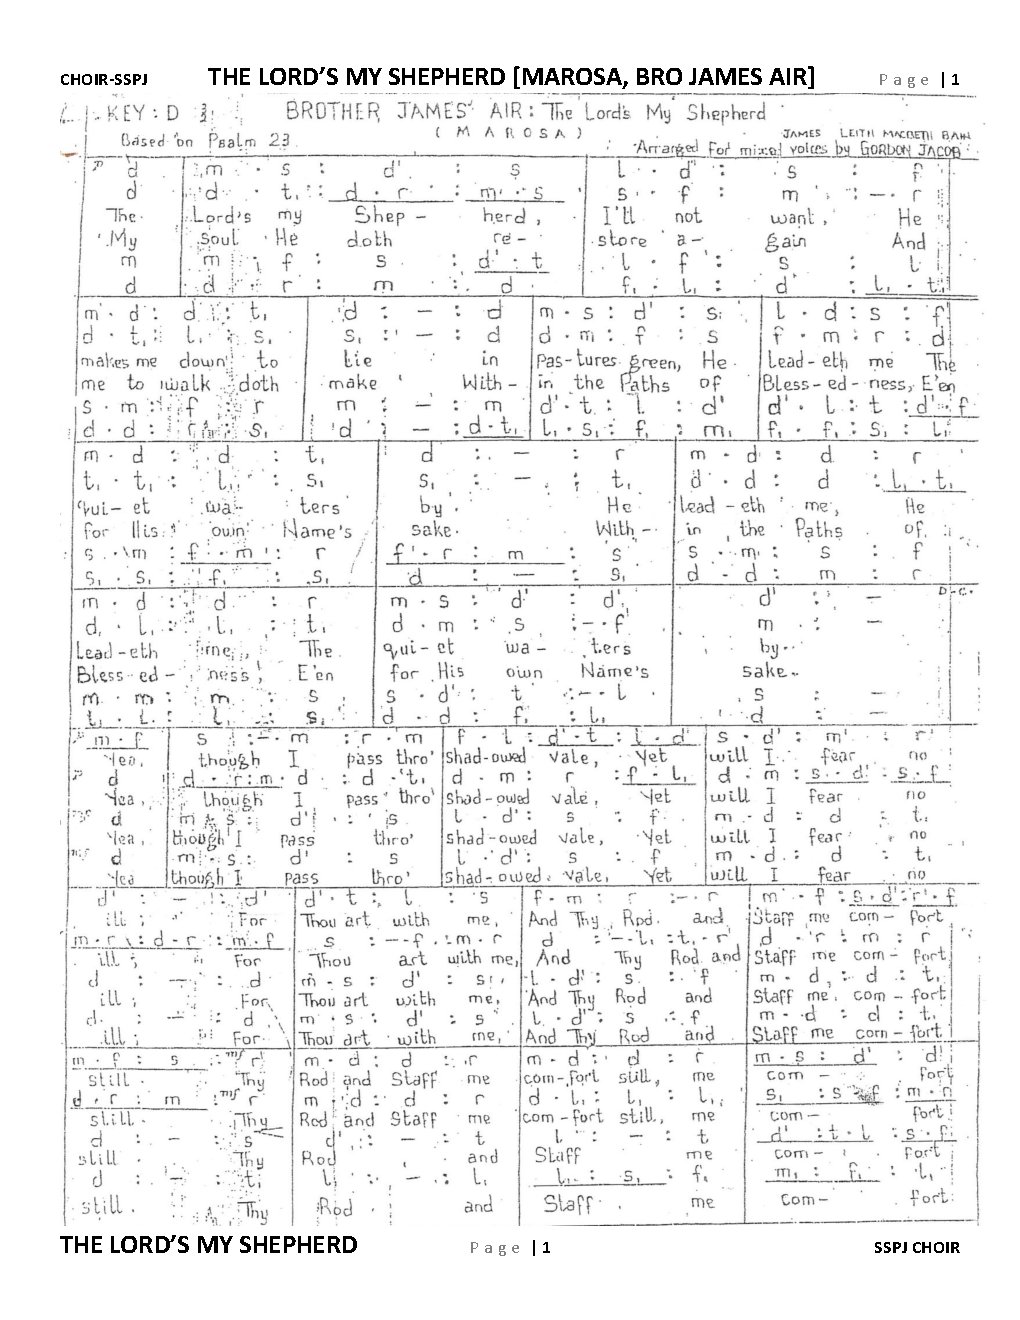 CHOIR-SSPJ THE LORD'S MY SHEPHERD [MAROSA, BRO JAMES AIR] Page | 1
KEY: D BROTHER JAMES' AIR: The Lord's My Shepherd
(MAROSA)
JAMES LEITH MACBETH BAIN
Based on Psalm 23 Arranged For mixed voices by GORDON JACOB
p d m . s : d' : s l . d' : s : f
d d . t, : d . r : m . s s . f : m : - . r
The Lord's my Shep - herd, I'll not want, He
My soul He doth re - store a - gain And
m m . f : s : d' . t l . f : s : l
d d . r : m : d f, . l, : d : l, . t,
m . d : d : t, d : - : d m . s : d' : s l . d : s : f
d . t, : l, : s, s, : - : d d . m : f : s f . m : r : d
makes me down to lie in Pas-tures green, He Lead-eth me The
me to walk doth make With- in the Paths of Bless-ed-ness, E'en
s . m : f : r m : - : m d' . t : l : d' d' . l : t : d' . f
d . d : s, d : - : d . t, l, . s, : f, : m, f, . f, : s, : l,
m . d : d : t, d : - : r m . d : d : r
t, . t, : l, : s, s, : - : t, d . d : d : l, . t,
qui-et wa- ters by. He lead-eth me, He
for His own Name's sake. With- in the Paths of.
s . m : f . m : r f . r : m : s s . m : s : f
s, . s, : f, : s, d : - : s, d . d : m : r
m . d : d : r m . s : d' : d' d' : - D.C.
d . l, : l, : t, d . m : s : - . f m : -
Lead-eth me, The qui-et wa- ters by.
Bless-ed- ness, E'en for His own Name's sake.
m . m : m : s s . d' : t : - . l s : -
t, . l, : l, : s, d . d : f, : l, d : -
p m . f s : - . m : r . m f . l : d' . t : l . d' s . d' : m' : r'
Yea, though I pass thro' shad-owed vale, Yet will I fear no
p d d . r : m . d : d . t, d . m : r : f . l, d . m : s . d' : s . f
Yea, though I pass thro' shad-owed vale, Yet will I fear no
mf d m . s : d' : s l . d' : s : f m . d : d : t,
Yea, though I pass thro' shad-owed vale, Yet will I fear no
mf d m . s : d' : s l . d' : s : f m . d : d : t,
Yea though I pass thro' shad-owed vale, Yet will I fear no
d' : - : d' d' . t : l : s f . m : r : - . r m . f : s . d' : r' . f
ill; For Thou art with me, And Thy Rod and Staff me com- fort
m . r : d . r : m . f s : - . f : m . r d : - . l, : t, . r d . r : m : r
ill; For Thou art with me, And Thy Rod and Staff me com- fort
d : - : d m . s : d' : s l . d' : s : f m . d : d : t,
ill; For Thou art with me, And Thy Rod and Staff me com- fort
d : - : d m . s : d' : s l . d' : s : f m . d : d : t,
ill; For Thou art with me, And Thy Rod and Staff me com- fort
m . f : s : mf r m . d : d : r m . d : d : r m . s : d' : d'
still. Thy Rod and Staff me com-fort still, me com- fort
d . r : m : mf r m . d : d : r d . l, : l, : l, s, : s f : m . n
still. Thy Rod and Staff me com-fort still, me com- fort
d : - : s d' : - : t l : - : t d' : t . l : s . f
still Thy Rod and Staff me com- fort
d : - : t, l, : - : l, l, : s, : f, m, : f, : l,
still. Thy Rod and Staff me com- fort
THE LORD'S MY SHEPHERD Page | 1 SSPJ CHOIR